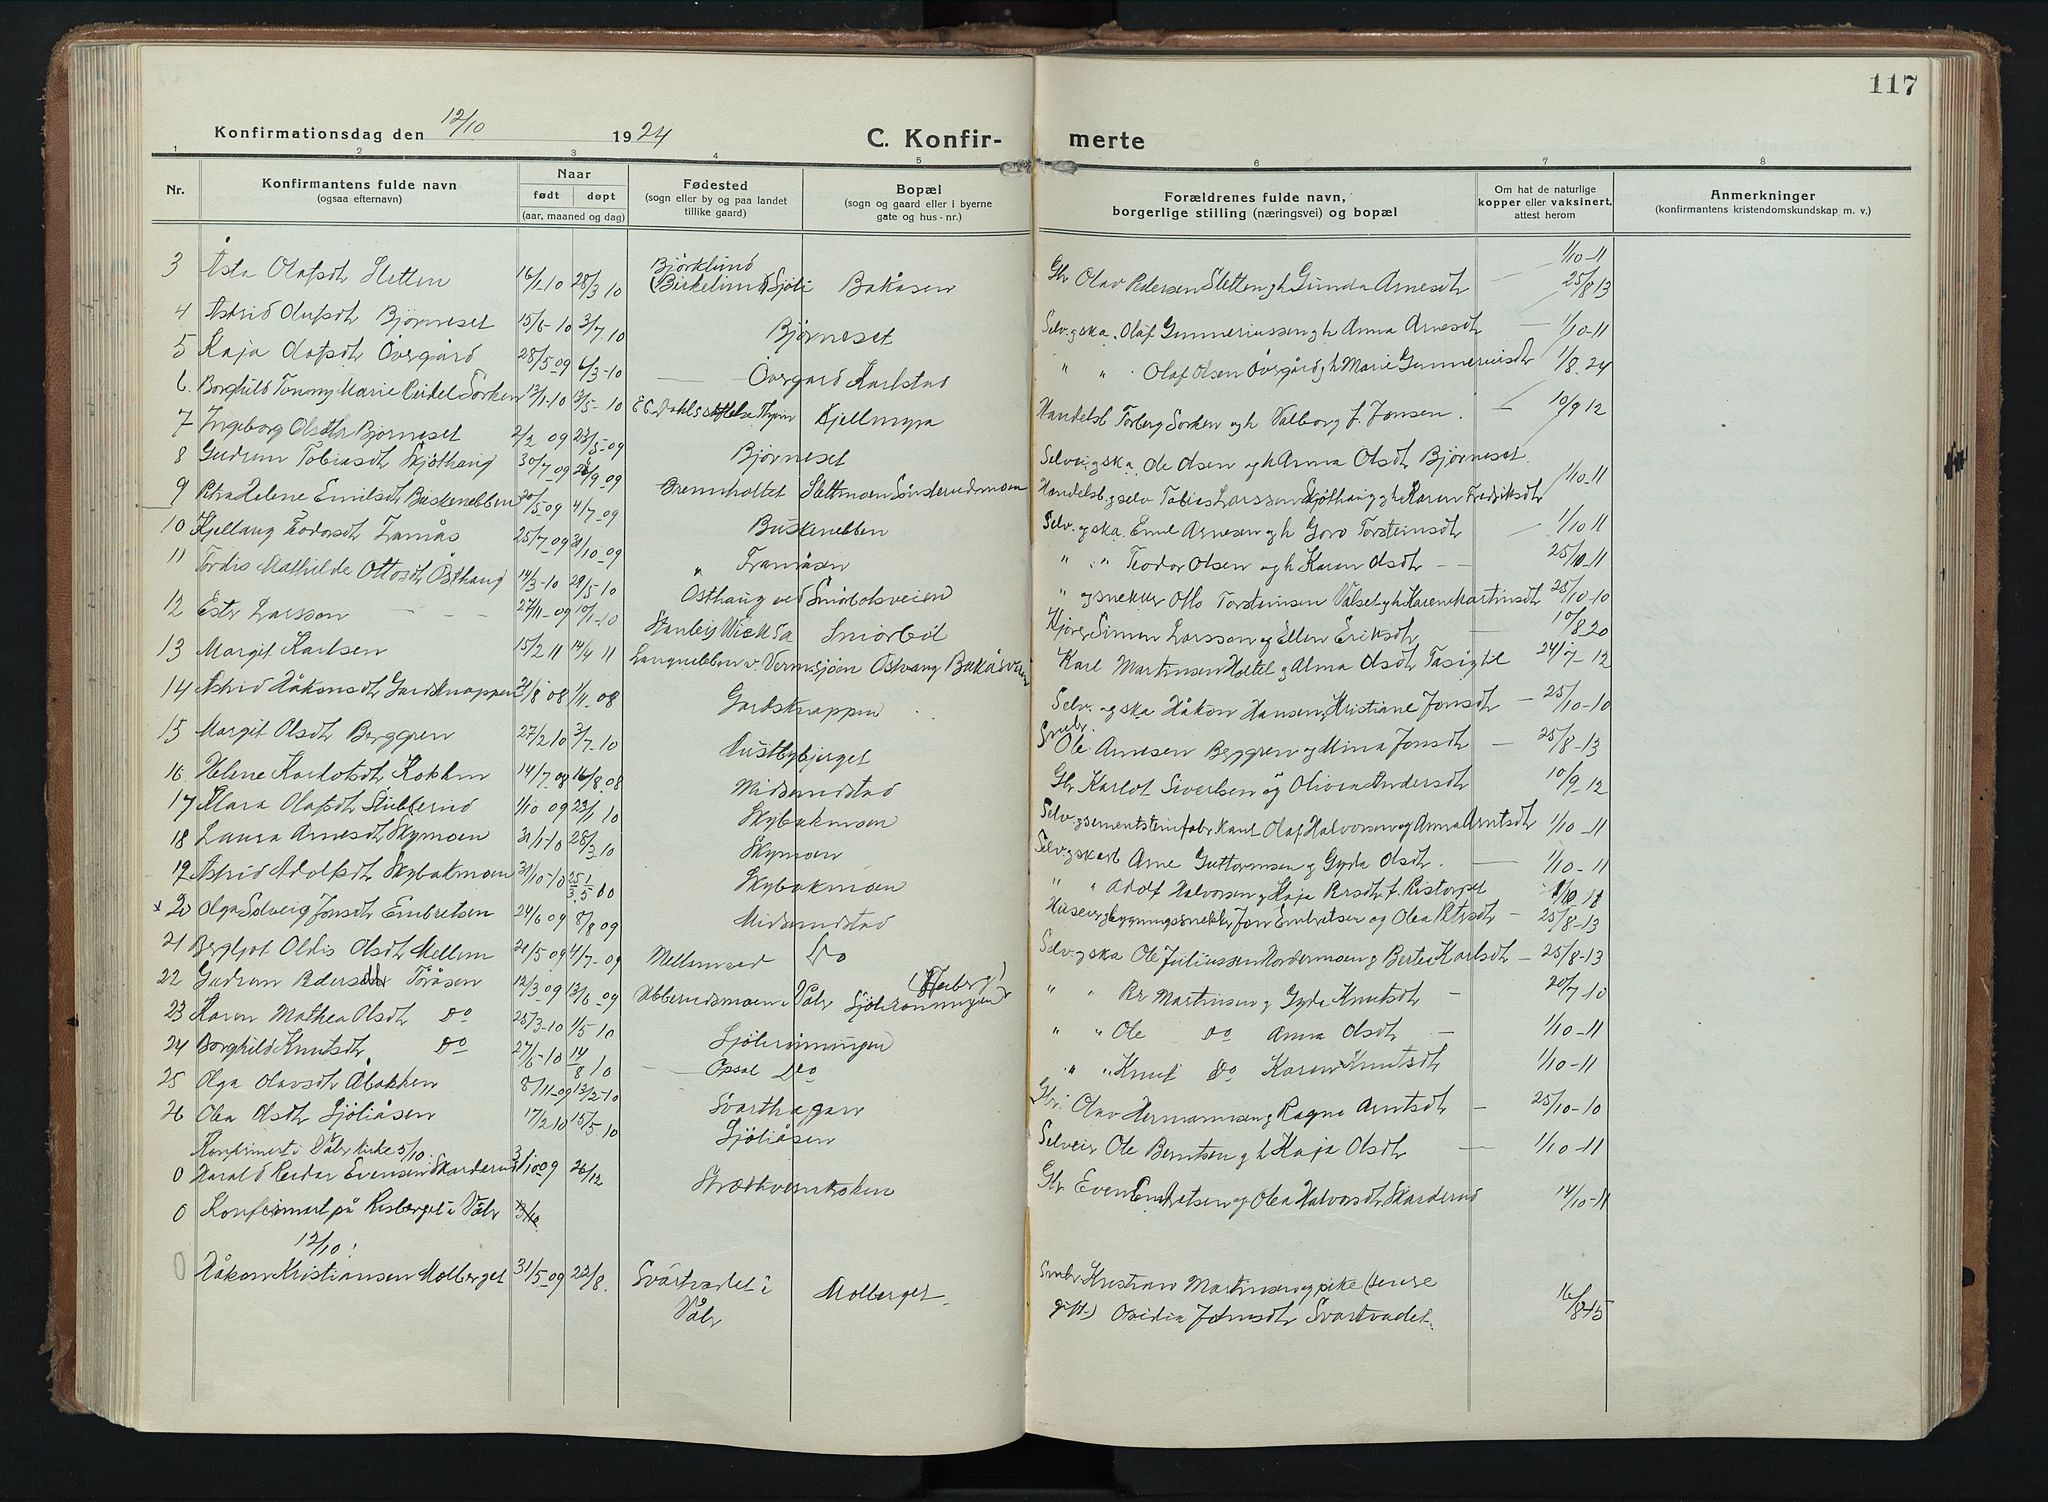 117
Konfirmationsdag den 12/10 1924
C. Konfir-
merte
1 2 3 4 5 6 7 8
Nr.
Konfirmantens fulde navn
(ogsaa efternavn)
Naar
født
døpt
(aar, maaned og dag)
Fødested
(sogn eller by og paa landet
tillike gaard)
Bopæl
(sogn og gaard eller i byerne
gate og hus-nr.)
Forældrenes fulde navn,
borgerlige stilling (næringsvei) og bopæl
Om hat de naturlige
kopper eller vaksinert,
attest herom
Anmerkninger
(konfirmantens kristendomskundskap m. v.)
3 Åsta Olafsdtr Sletten 16/1-10 28/3 10 Björklund (Birkelund) Sjöli Bakåsen Gbr Olav Pedersen Sletten og h Gunda Arnesdtr 1/10-11
25/8 13
4 Astrid Olufsdtr Bjørneset 15/6-10 3/7 10 Bjørneset Selv. og ska. Olaf Gunneriussen og h Anna Arnesdtr 1/10-11
5 Kaja Olafsdtr Övergård 28/5-09 6/3-10 Övergård Karlstad " " Olaf Olsen Övergård og h Marie Gunneriusdtr 1/8 24
6. Borghild Tommy Marie Reidel Sorken 13/1-10 13/5-10 E.C. Dahls stiftelse Thjem Kjellmyra Handelsb Torberg Sorken og h Valborg f. Jonsen. 10/9 12
7 Ingeborg Olsdtr Bjørneset 2/2 09 23/5-09 Bjørneset Selvei. og ska. Ole Olsen og h Anna Olsdtr Bjørneset
8 Gudrun Tobiasdtr Skjöthaug 30/7-09 26/9 09 Brennholtet Slettmoen Sönderudsmoen Handelsb. og selv Tobias Larssen Skjöthaug og h Karen Fredriksdtr 1/10-11
9 Petra Helene Emilsdtr Buskenebben 30/5-09 4/7-09 Buskenebben Selv. og ska. Emil Arnesen og h Goro Torsteinsdtr 1/10 11
10 Kjellaug Teodorsdtr Tranås 25/7-09 31/10-09 " Tranåsen " " Teodor Olsen og h Karen Olsdtr 25/10-11
11 Tordis Mathilde Ottosdtr Östhaug 14/3-10 29/5 10 Östhaug ved Smörbölsveien " og snekker Otto Torsteinsen Valset og h Karen Martinsdtr 25/10-10
12 Ester Larsson 27/11-09 10/1-10 Stanley Wick Sa Smörböl Kjörer Simen Larsson og Ellen Eriksdtr 10/8 20
13 Margit Karlsen 15/2 11 14/4 11 Langnebben v Vermsjøen Östvang Bakåsveien Karl Martinsen Holtet og Alma Olsdtr 24/7-12
14 Astrid Håkonsdtr Gardsknappen 21/8 08 1/11-08 Gardsknappen Selv. og ska Håkon Hansen, Kristiane Jonsdtr 25/10-10
15 Margit Olsdtr Berggren 27/2 10 3/7-10 Austbybjerget Ole Arnesen Berggren og Mina Jonsdtr 25/8-13
16. Helene Karlotsdtr Kokken 14/7-08 16/8-08 Midsundstad Gbr Karlot Sivertsen og Olivia Andersdtr 10/9-12
17 Klara Olafsdtr Stubberud 1/10 09 23/1 10 Skybakmoen Selv. og sementsteinfabrikant Olaf Halvorsen og Anna Arntsdtr 1/10-11
18 Laura Arnesdtr Skymoen 31/1-10 28/3 10 Skymoen Selv. og skarb Arne Guttormsen og Gyda Olsdtr. 1/10-11
19 Astrid Adolfsdtr Skybakmoen 31/10-10 Skybakmoen " " Adolf Halvorsen og Kaja Persdtr f. Ristorpet
x 20 Olga Solveig Jonsdtr Embretsen 24/6 09 8/8 09 Midsundstad Huseier og bygningssnekker Jon Embretsen og Olea Petersdtr 25/8-13
21 Bergljot Oldis Olsdtr Mellem 21/5 09 4/7-09 Mellemsæd Do Selv. og ska Ole Juliussen Nordermoen og Berte Karlsdtr 25/8-13
22 Gudrun Pedersdtr Töråsen 12/3-09 13/6-09 Ubberudsmoen i Våler Sjölirönningen " " Per Martinsen og Gyda Knutsdtr 20/7 10
23 Karen Mathea Olsdtr Do 25/3-10 1/5 10 " " Ole Do Anna Olsdtr 1/10-11
24 Borghild Knutsdtr Do 27/6-10 14/8 10 Sjölirönningen " " Knut Do Karen Knutsdtr 1/10-11
25 Olga Olavsdtr Åbakken 8/11-09 13/2-10 Opsal Do Gbr. Olav Hermansen og Ragna Arntsdtr 25/10-10
26 Olea Olsdtr Sjöliåsen 17/2 10 15/5 10 Svarthagen
Sjöliåsen Selveier Ole Berntsen og h Kaja Olsdtr 1/10-11
Konfirmert i Våler kirke 5/10.
0 Harald Reidar Evensen Skarderud 3/10 09 26/12 Strætkvernbakken Gbr Even Embretsen og Olea Halvorsdtr Skarderud 14/10-11
0 Konfirmert på Risberget i Våler
12/10!
0 Håkon Kristiansen Molberget 31/5-09 22/8. Svartvadet i Våler Molberget. Smbr Kristian Martinsen og pike (senere
gift) Osidia Jonsdtr Svartvadet. 16/8 15